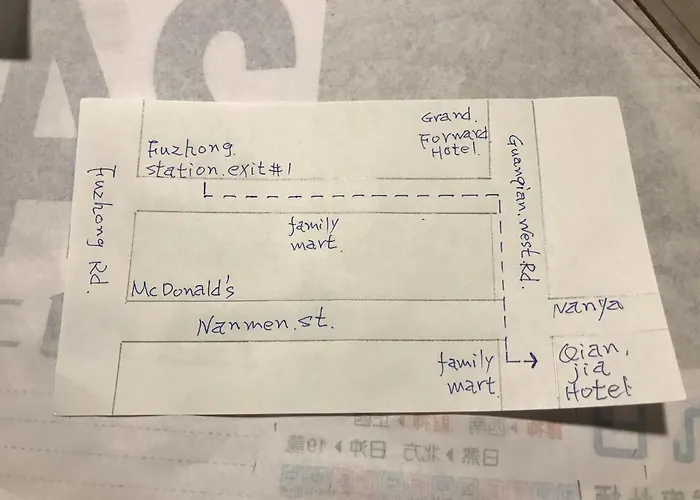 Fuzhong
station.exit#1
Grand.
Forward
Hotel.
Guanqian.West.Rd.
Fuzhong Rd.
family
mart.
McDonald's
Nanmen.st.
family
mart.
Nanya
Qian.
jia
Hotel